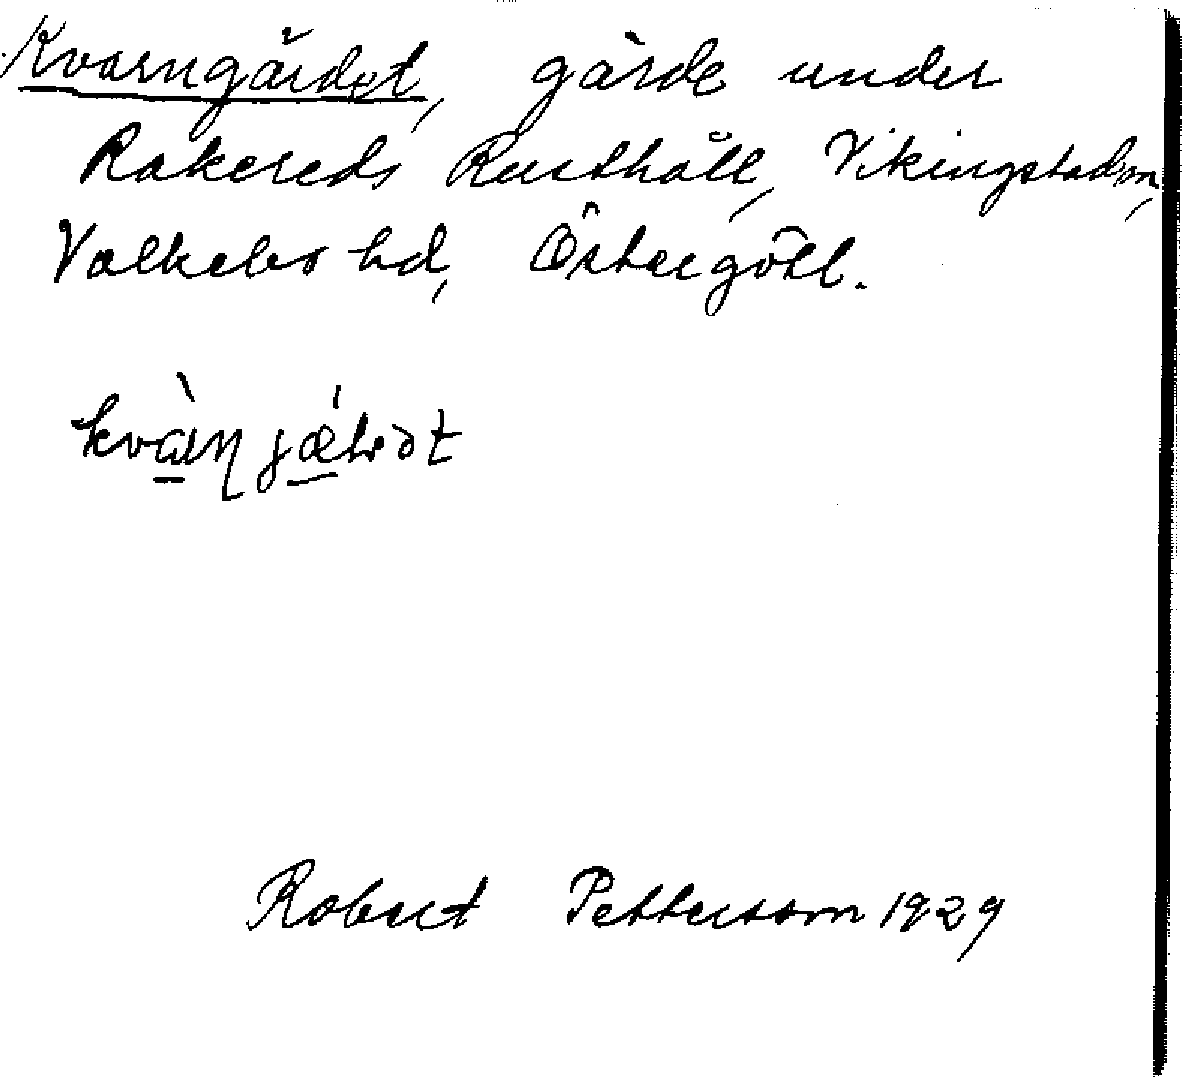 Kvarngärdet, gärde under
Rakereds Rusthåll, Vikingstad sn,
Valkebo hd, Östergötl.
Robert Pettersson 1929